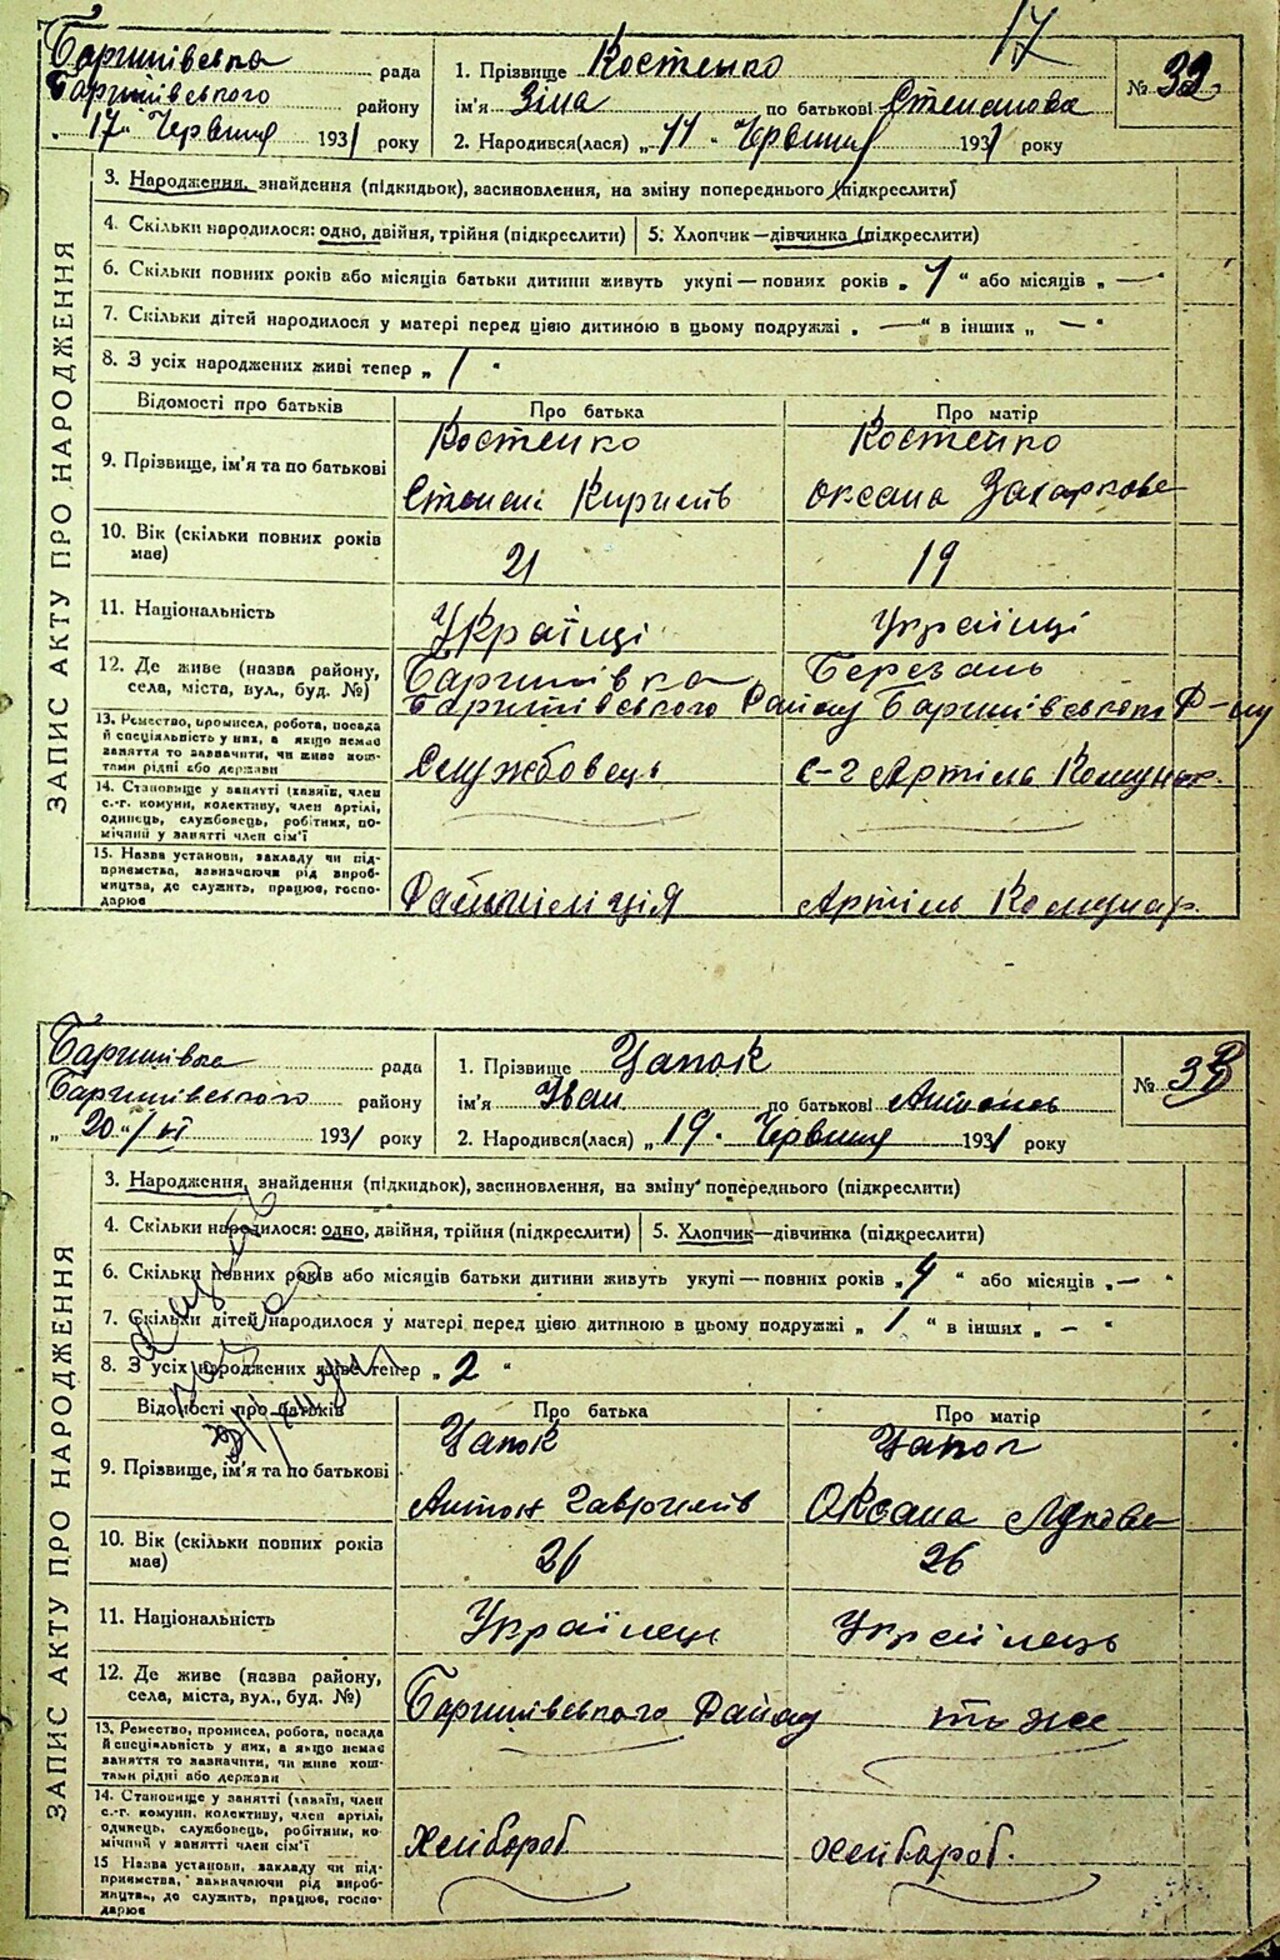 17
Баришівська рада
Баришівського району
„17" Червня 1931 року
1. Прізвище Костенко
ім'я Зіна по батькові Степанова
2. Народився(лася) „11" Червня 1931 року
№ 32
ЗАПИС АКТУ ПРО НАРОДЖЕННЯ
3. Народження, знайдення (підкидьок), засиновлення, на зміну попереднього (підкреслити)
4. Скільки народилося: одно, двійня, трійня (підкреслити) 5. Хлопчик—дівчинка (підкреслити)
6. Скільки повних років або місяців батьки дитини живуть укупі—повних років „1" або місяців „—"
7. Скільки дітей народилося у матері перед цією дитиною в цьому подружжі „—" в інших „—"
8. З усіх народжених живі тепер „1"
Відомості про батьків Про батька Про матір
9. Прізвище, ім'я та по батькові
Костенко Костенко
Степан Кирилів Оксана Захаркова
10. Вік (скільки повних років має) 21 19
11. Національність Українці Українці
12. Де живе (назва району, села, міста, вул., буд. №)
Баришівка Березань
Баришівського Району Баришівського Р-ну
13. Ремество, промисел, робота, посада й спеціяльність у них, а якщо немає заняття то зазначити, чи живе коштами рідні або держави
Службовець с-г Артіль Комунар.
14. Становище у занятті (хазяїн, член с.-г. комуни, колективу, член артілі, одинець, службовець, робітник, помічний у занятті член сім'ї
15. Назва установи, закладу чи підприємства, зазначаючи рід виробництва, де служить, працює, господарює
Райміліція Артіль Комунар.
Баришівка рада
Баришівського району
„20"/VI 1931 року
1. Прізвище Цапок
ім'я Іван по батькові Антонов
2. Народився(лася) „19" Червня 1931 року
№ 33
ЗАПИС АКТУ ПРО НАРОДЖЕННЯ
3. Народження, знайдення (підкидьок), засиновлення, на зміну попереднього (підкреслити)
4. Скільки народилося: одно, двійня, трійня (підкреслити) 5. Хлопчик—дівчинка (підкреслити)
6. Скільки повних років або місяців батьки дитини живуть укупі—повних років „4" або місяців „—"
7. Скільки дітей народилося у матері перед цією дитиною в цьому подружжі „1" в інших „—"
8. З усіх народжених живі тепер „2"
Відомості про батьків Про батька Про матір
9. Прізвище, ім'я та по батькові
Цапок Цапок
Антон Гаврилів Оксана
10. Вік (скільки повних років має) 26 26
11. Національність Українець Українець
12. Де живе (назва району, села, міста, вул., буд. №)
Баришівського Району тоже
13. Ремество, промисел, робота, посада й спеціяльність у них, а якщо немає заняття то зазначити, чи живе коштами рідні або держави
14. Становище у занятті (хазяїн, член с.-г. комуни, колективу, член артілі, одинець, службовець, робітник, помічний у занятті член сім'ї
Хлібороб Хлібороб.
15 Назва установи, закладу чи підприємства, зазначаючи рід виробництва, де служить, працює, господарює